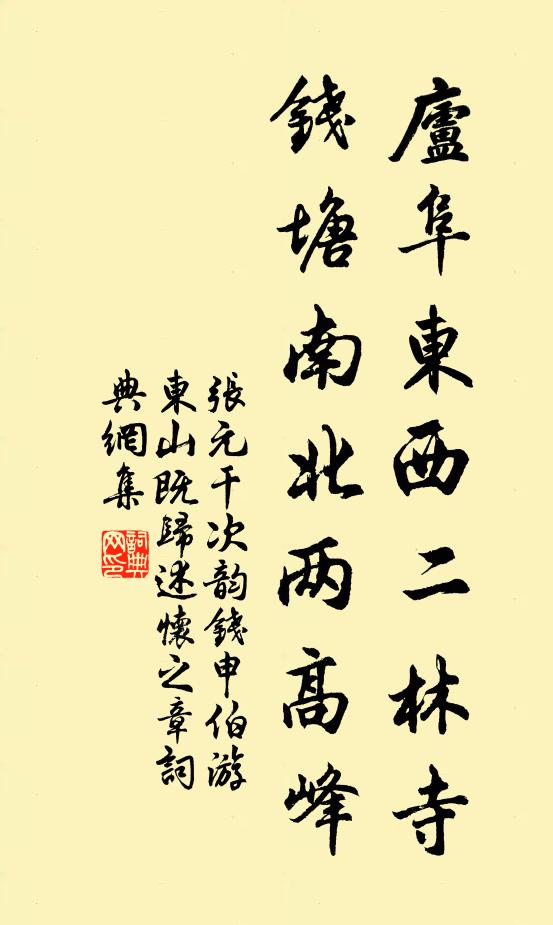 廬阜東西二林寺
錢塘南北两高峰
張元干次韵錢申伯游
東山既歸述懷之章詞
典網集
詞典网印